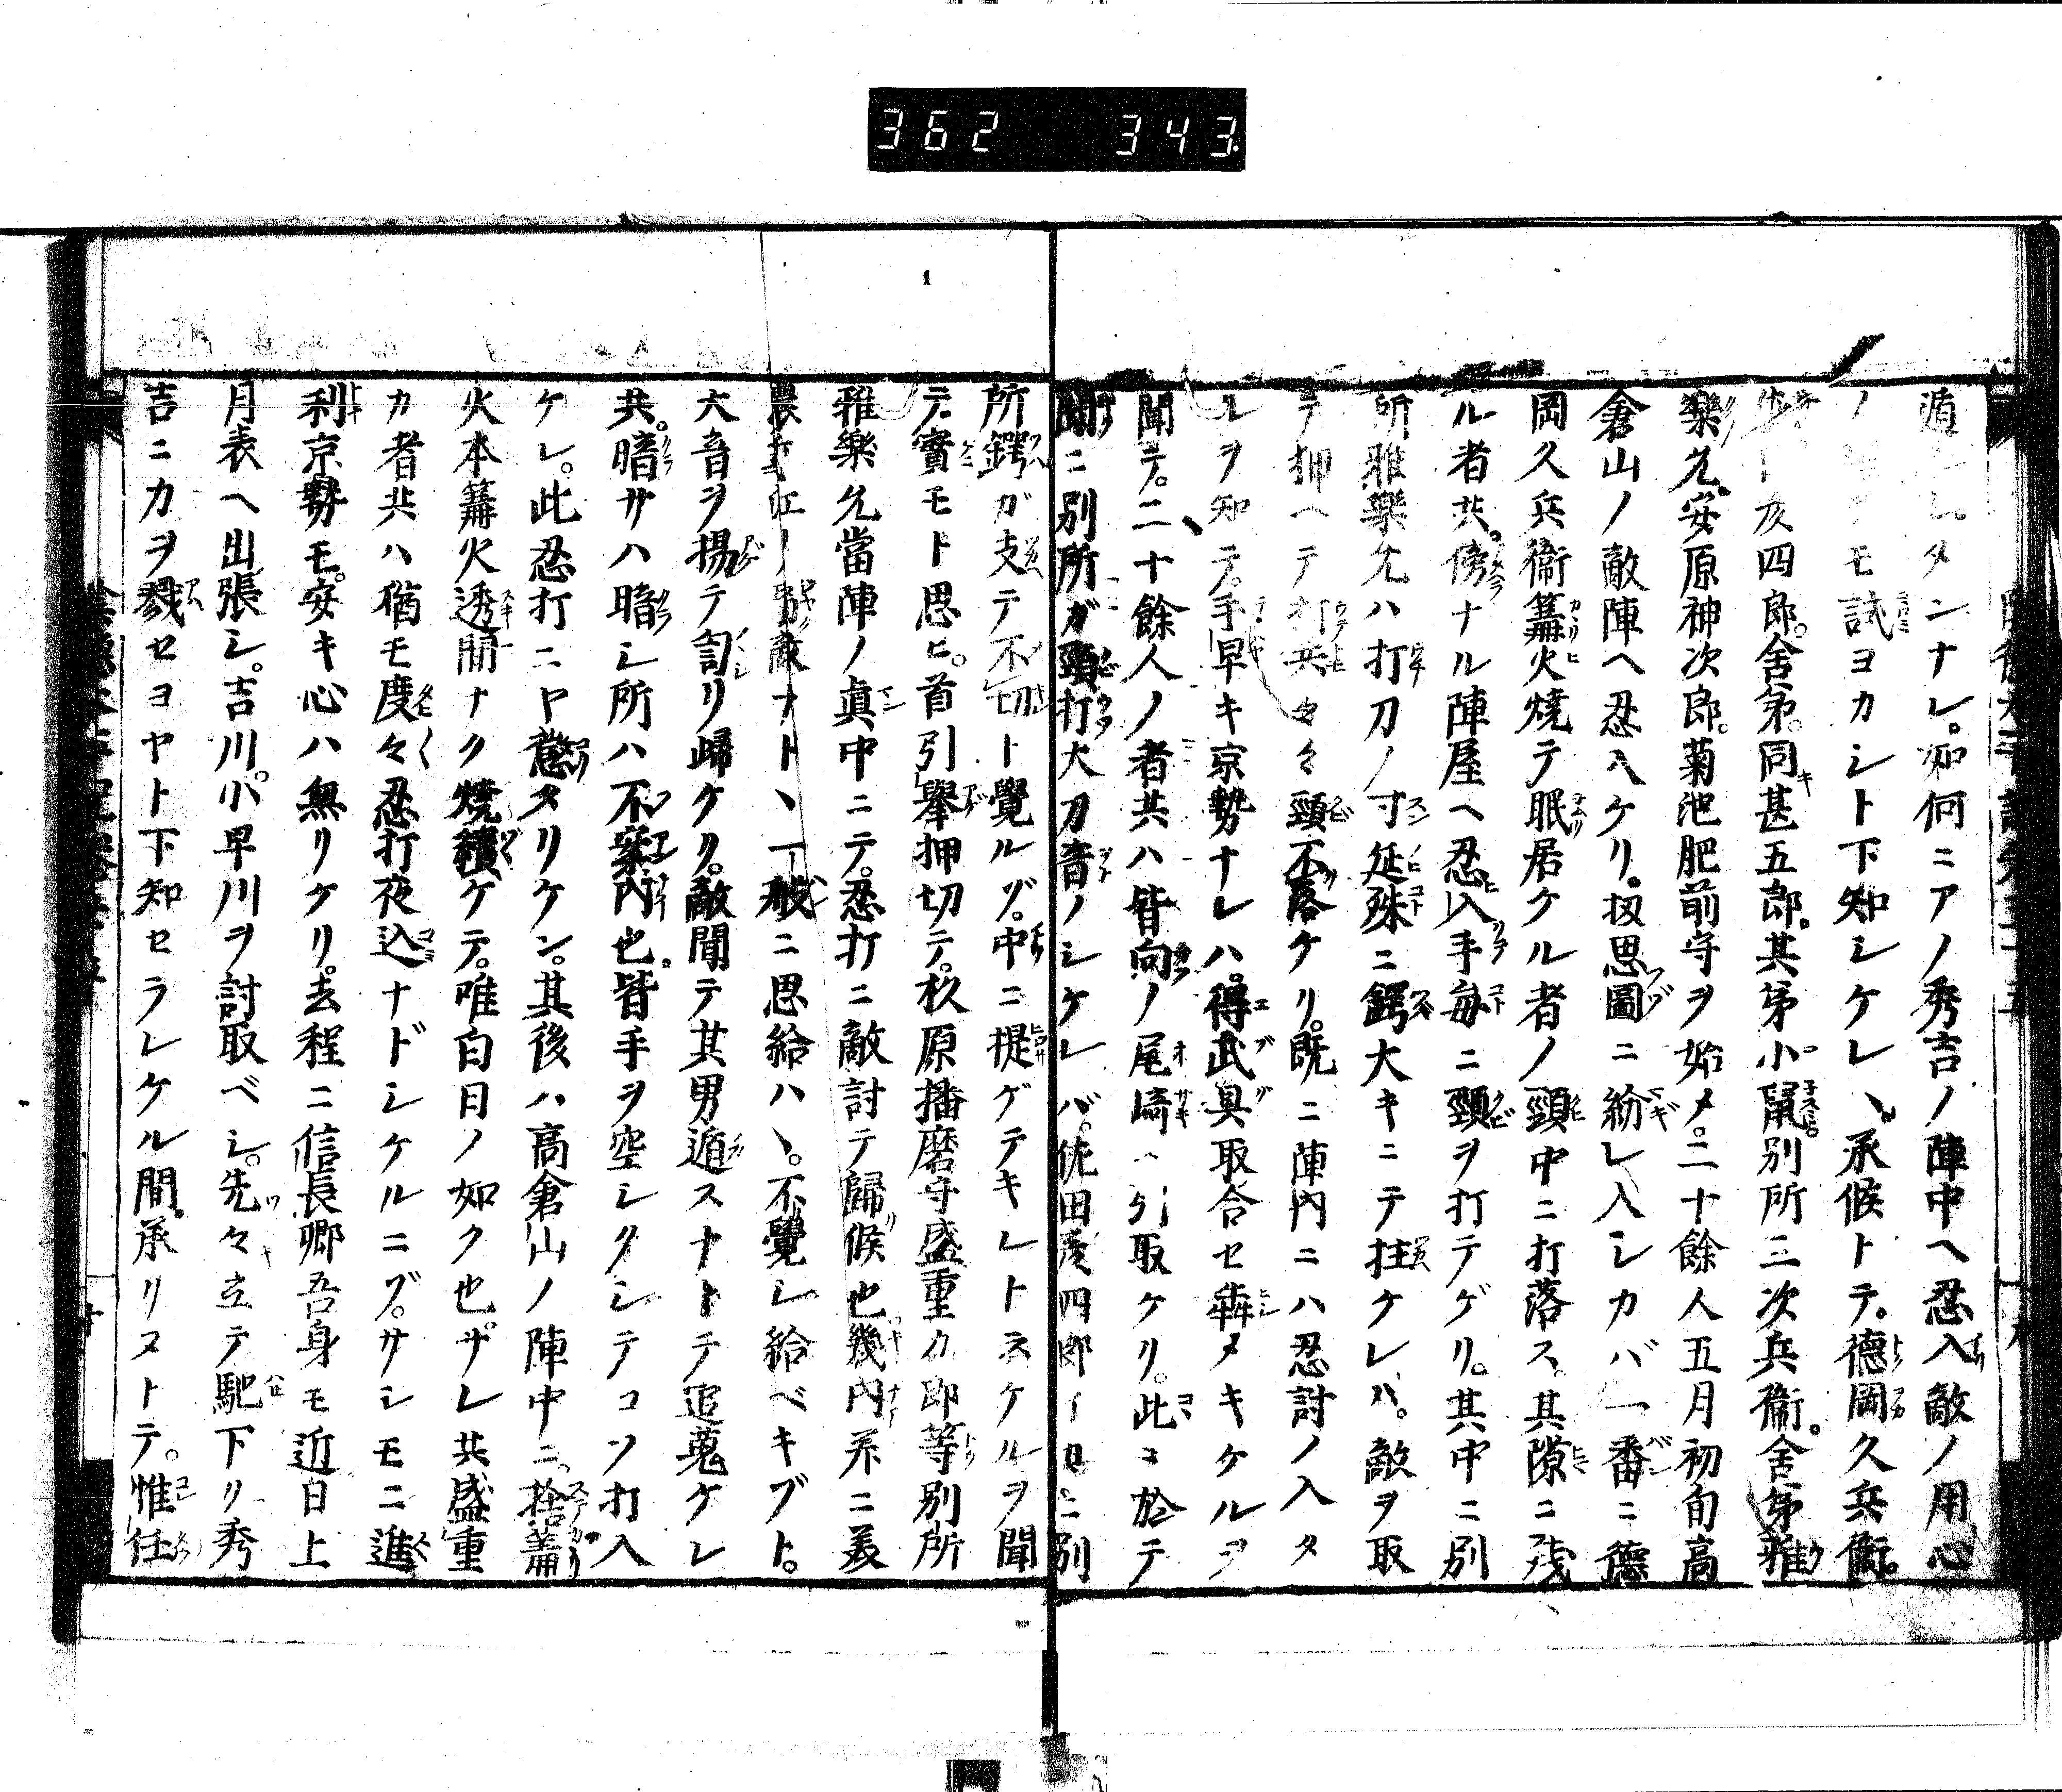 362 343
遁シタンナレ。如何ニアノ秀吉ノ陣中ヘ忍入敵ノ用心
モ試ヨカシト下知シケレハ、承候トテ。德岡久兵衞。
友四郎。舍弟。同甚五郎。其弟小鼠。別所三次兵衞。舍弟雅
樂允。安原神次郎。菊池肥前守ヲ始メ。二十餘人五月初旬高
倉山ノ敵陣ヘ忍入ケリ。扨思圖ニ紛レ入シカバ一番ニ德
岡久兵衞篝火燒テ眠居ケル者ノ頸中ニ打落ス。其隙ニ殘
ル者共。傍ナル陣屋ヘ忍入手毎ニ頸ヲ打テゲリ。其中ニ別
所雅樂允ハ打刀ノ寸延殊ニ鍔大キニテ拄ケレバ。敵ヲ取
テ押ヘテ打共々々頸不落ケリ。既ニ陣內ニハ忍討ノ入タ
ルヲ知テ。手早キ京勢ナレハ。得武具取合セ犇メキケルヲ
聞テ。二十餘人ノ者共ハ皆向ノ尾崎ヘ引取ケリ。此コ於テ
聞ニ別所ガ頸打大刀音ノシケレバ。佐田彦四郎イヨニ別
所鍔ガ支テ不切ト覺ルゾ。中ニ提ゲテキレトヨケルヲ聞
テ。實モト思ヒ。首引擧押切テ。杉原播磨守盛重カ郎等別所
雅樂允當陣ノ眞中ニテ。忍打ニ敵討テ歸候也。幾內并ニ美
農尾江ノ弱敵ナト、一般ニ思給ハ、。不覺シ給ベキゾト。
大音ヲ揚テ訇リ歸ケリ。敵聞テ其男遁スナトテ追蒐ケレ
共。暗サハ暗シ所ハ不案內也。皆手ヲ空シクシテコソ打入
ケレ。此忍打ニヤ懲タリケン。其後ハ高倉山ノ陣中ニ、捨篝
火本篝火透間ナク燒續ケテ。唯白日ノ如ク也。サレ共盛重
カ者共ハ猶モ度々忍打夜込ナドシケルニゾ。サシモニ進
利京勢モ。安キ心ハ無リケリ。去程ニ信長卿吾身モ近日上
月表ヘ出張シ。吉川。小早川ヲ討取ベシ。先々立テ馳下リ秀
吉ニカヲ戮セヨヤト下知セラレケル間。承リヌトテ。惟任